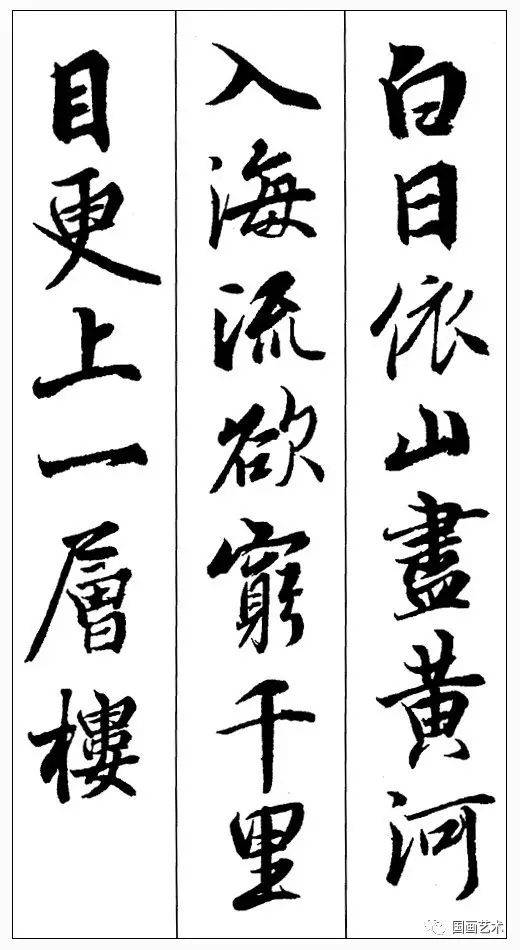 白日依山盡黄河
入海流欲窮千里
目更上一層樓
国画艺术